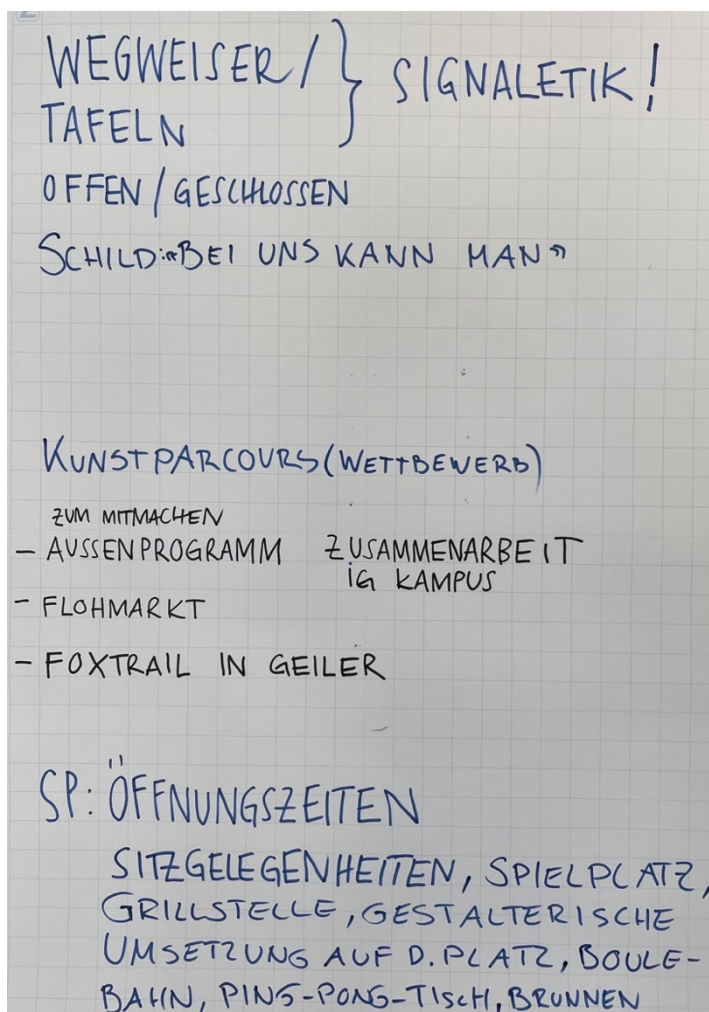 WEGWEISER / } SIGNALETIK!
TAFELN
OFFEN / GESCHLOSSEN
SCHILD: "BEI UNS KANN MAN"
KUNSTPARCOURS (WETTBEWERB)
ZUM MITMACHEN
- AUSSENPROGRAMM ZUSAMMENARBEIT
IG KAMPUS
- FLOHMARKT
- FOXTRAIL IN GEILER
SP: ÖFFNUNGSZEITEN
SITZGELEGENHEITEN, SPIELPLATZ,
GRILLSTELLE, GESTALTERISCHE
UMSETZUNG AUF D. PLATZ, BOULE-
BAHN, PING-PONG-TISCH, BRUNNEN